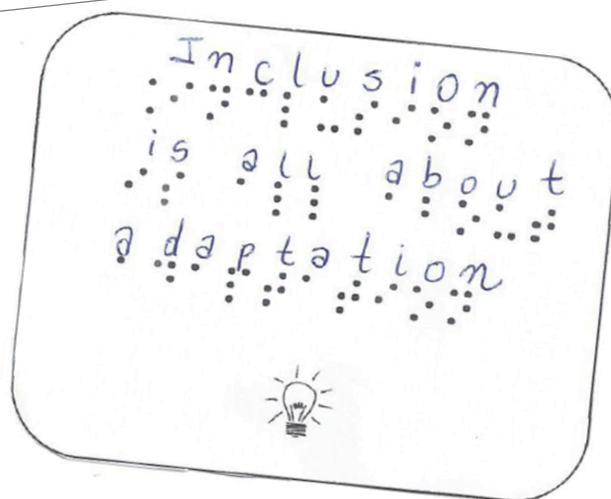 Inclusion
is all about
adaptation